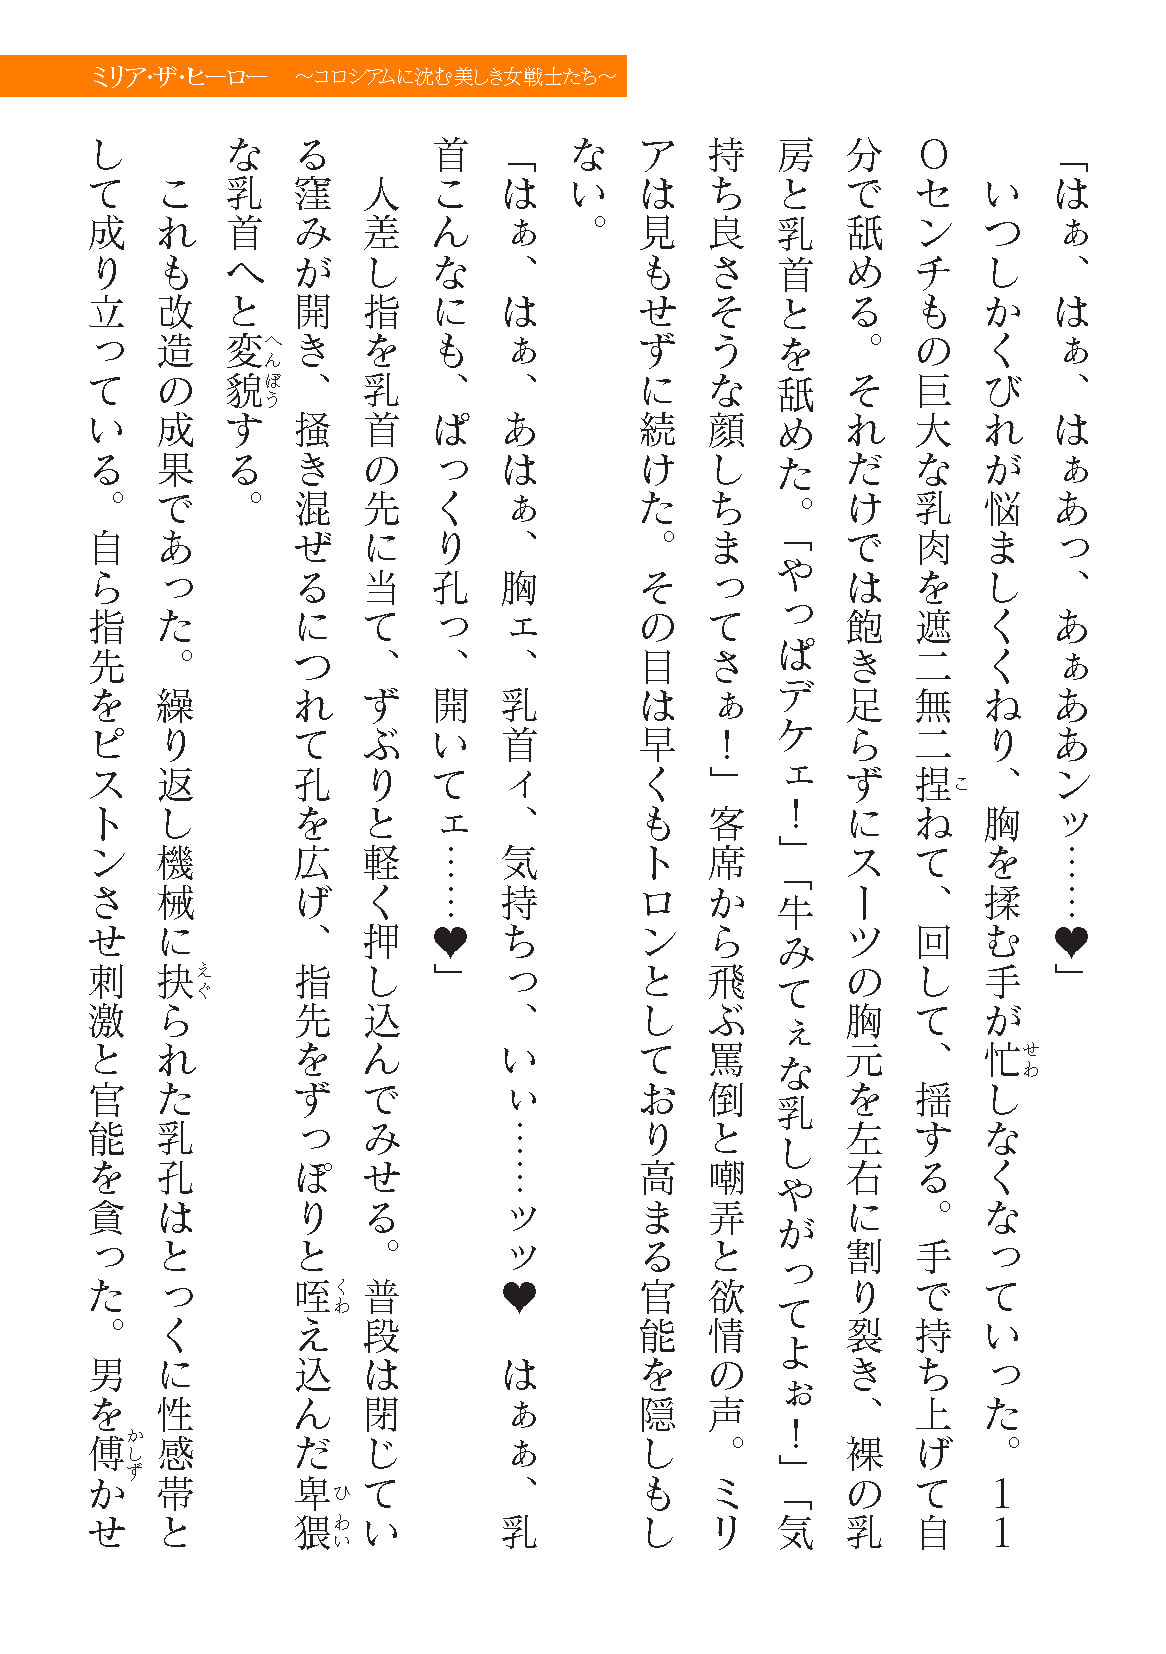 ミリア・ザ・ヒーロー　～コロシアムに沈む美しき女戦士たち～
「はぁ、はぁ、はぁあっ、あぁああンッ……♥」
　いつしかくびれが悩ましくくねり、胸を揉む手が忙しなくなっていった。１１
０センチもの巨大な乳肉を遮二無二捏ねて、回して、揺する。手で持ち上げて自
分で舐める。それだけでは飽き足らずにスーツの胸元を左右に割り裂き、裸の乳
房と乳首とを舐めた。「やっぱデケェ！」「牛みてぇな乳しやがってよぉ！」「気
持ち良さそうな顔しちまってさぁ！」客席から飛ぶ罵倒と嘲弄と欲情の声。ミリ
アは見もせずに続けた。その目は早くもトロンとしており高まる官能を隠しもし
ない。
「はぁ、はぁ、あはぁ、胸ェ、乳首ィ、気持ちっ、いぃ……ッッ♥　はぁぁ、乳
首こんなにも、ぱっくり孔っ、開いてェ……♥」
　人差し指を乳首の先に当て、ずぶりと軽く押し込んでみせる。普段は閉じてい
る窪みが開き、掻き混ぜるにつれて孔を広げ、指先をずっぽりと咥え込んだ卑猥
な乳首へと変貌する。
　これも改造の成果であった。繰り返し機械に抉られた乳孔はとっくに性感帯と
して成り立っている。自ら指先をピストンさせ刺激と官能を貪った。男を傅かせ